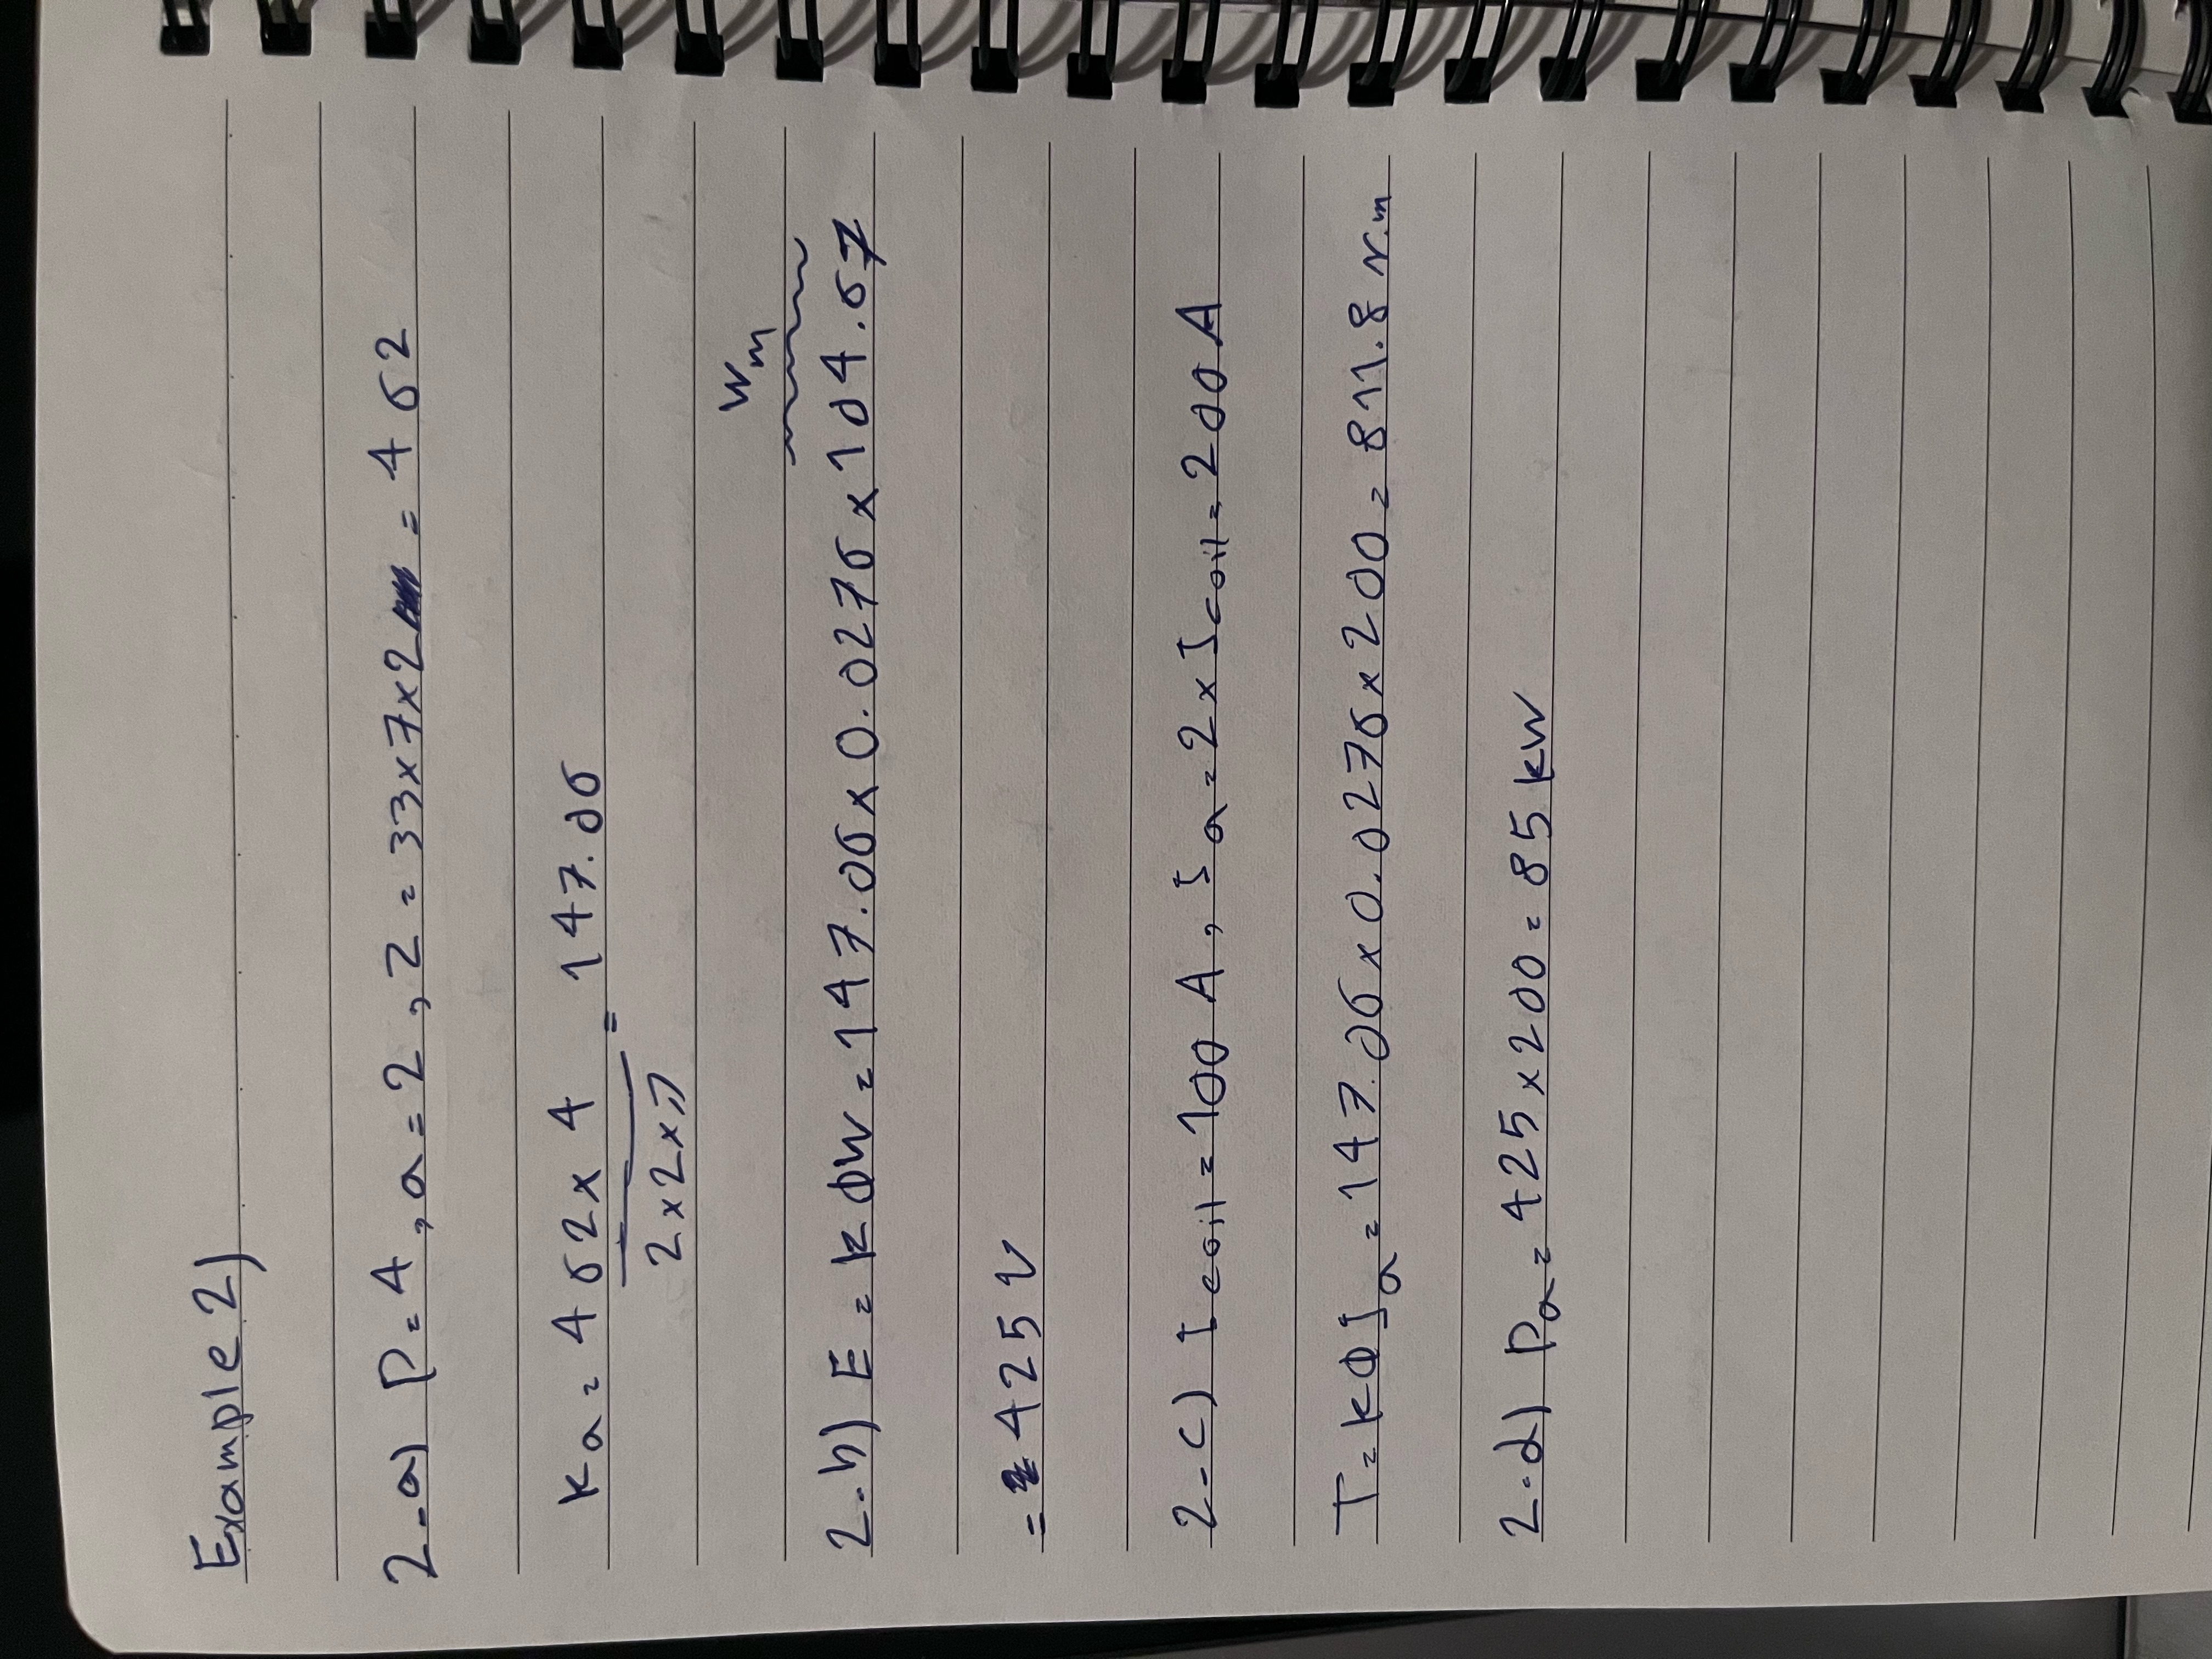 Example 2)
2-a) P = 4 , a = 2 , Z = 33x7x2 = 462
Ka = 462 x 4 = 147.06
2x2xπ
Wm
2-b) E = kΦW = 147.06 x 0.0276 x 104.67
= 425 V
2-c) Icoil = 100 A , Ia = 2 x Icoil = 200 A
T = kΦIa = 147.06 x 0.0276 x 200 = 811.8 N.m
2-d) Pa = 425 x 200 = 85 kW